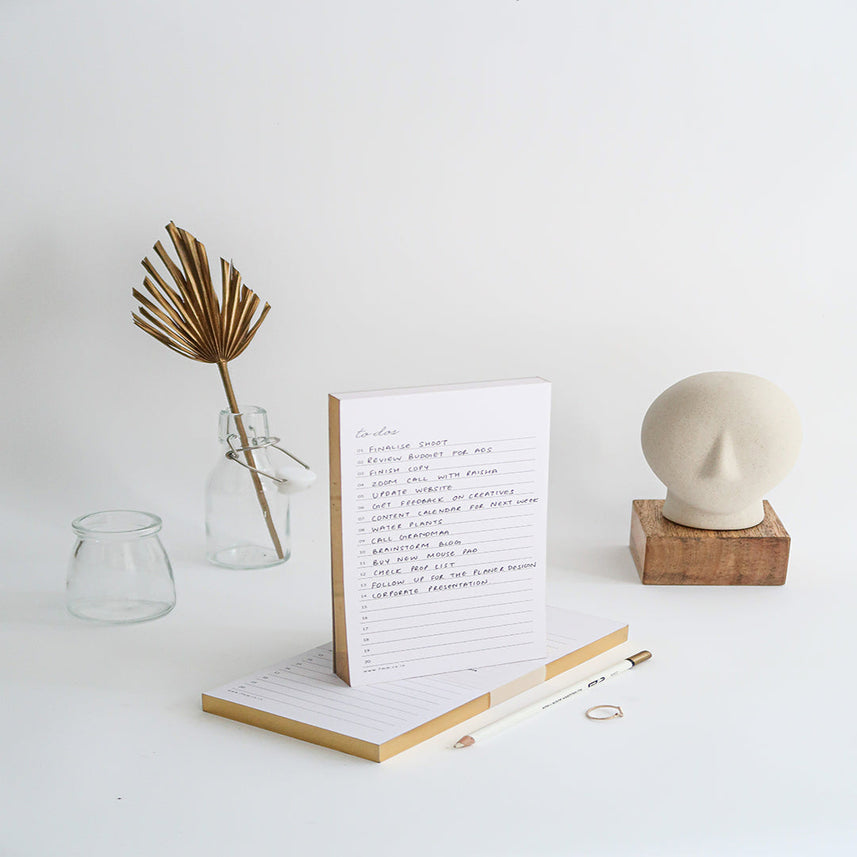 to dos
01 FINALISE SHOOT
02 REVIEW BUDGET FOR ADS
03 FINISH COPY
04 ZOOM CALL WITH RAISHA
05 UPDATE WEBSITE
06 GET FEEDBACK ON CREATIVES
07 CONTENT CALENDAR FOR NEXT WEEK
08 WATER PLANTS
09 CALL GRANDMAA
10 BRAINSTORM BLOG
11 BUY NEW MOUSE PAD
12 CHECK PROP LIST
13 FOLLOW UP FOR THE PLANER DESIGN
14 CORPORATE PRESENTATION
15
16
17
18
19
20